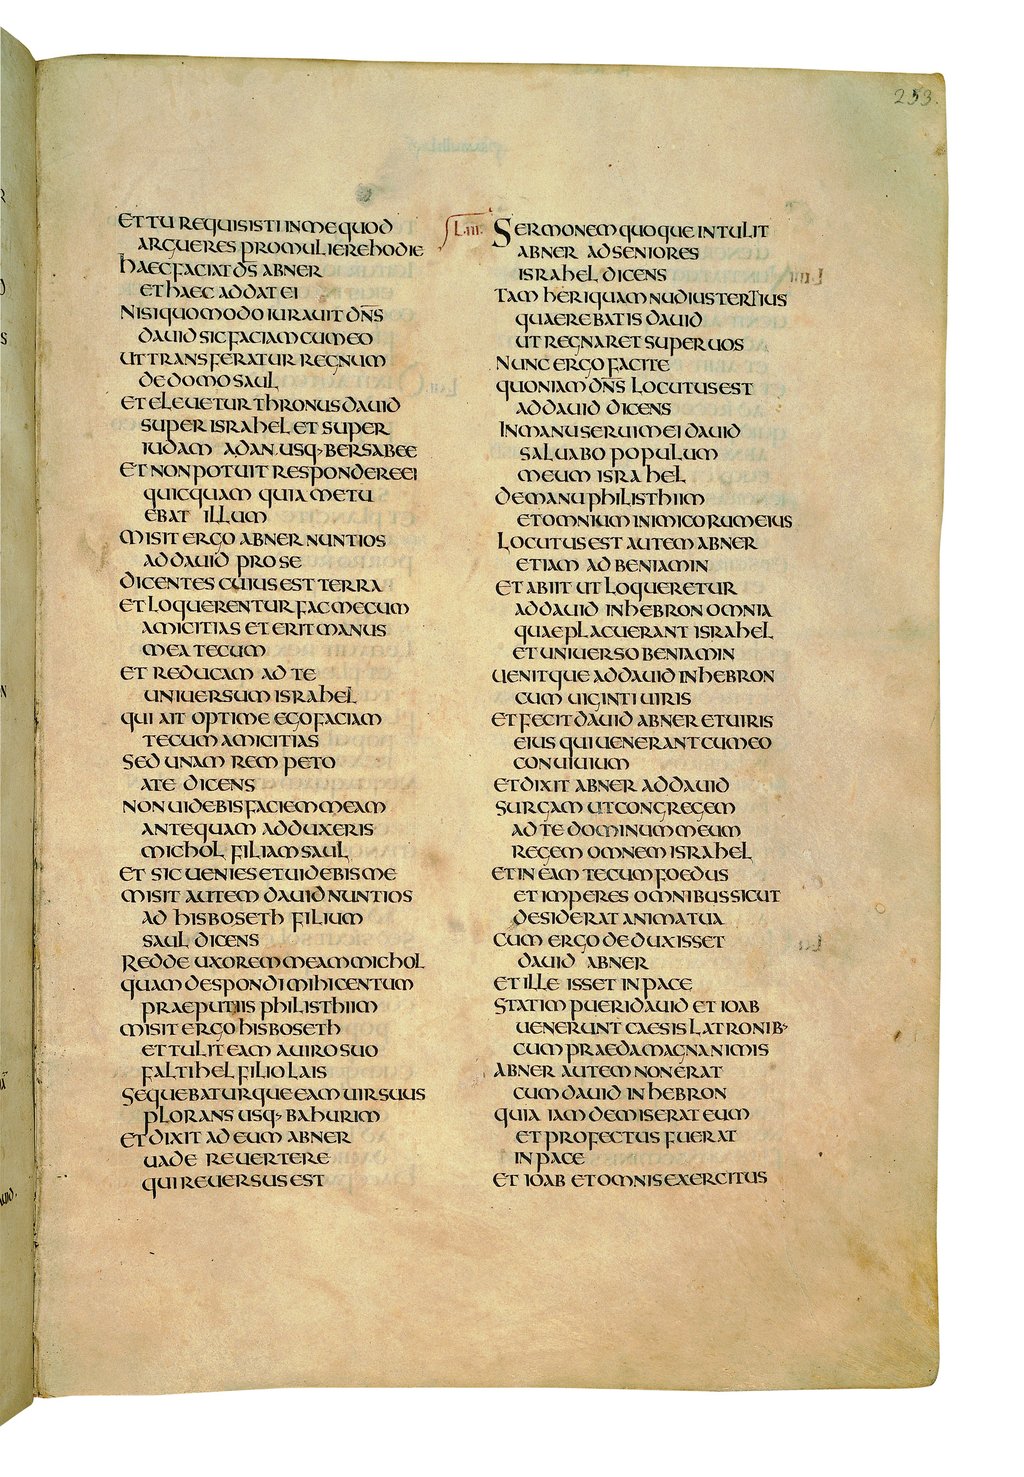 253.
ET TU REQUISISTI IN ME QUOD
ARGUERES PRO MULIERE HODIE
HAEC FACIAT D̄S ABNER
ET HAEC ADDAT EI
NISI QUOMODO IURAUIT DN̄S
DAUID SIC FACIAM CUM EO
UT TRANSFERATUR REGNUM
DE DOMO SAUL
ET ELEUETUR THRONUS DAUID
SUPER ISRAHEL ET SUPER
IUDAM A DAN USQ· BERSABEE
ET NON POTUIT RESPONDERE EI
QUICQUAM QUIA METU
EBAT ILLUM
MISIT ERGO ABNER NUNTIOS
AD DAUID PRO SE
DICENTES CUIUS EST TERRA
ET LOQUERENTUR FAC MECUM
AMICITIAS ET ERIT MANUS
MEA TECUM
ET REDUCAM AD TE
UNIUERSUM ISRAHEL
QUI AIT OPTIME EGO FACIAM
TECUM AMICITIAS
SED UNAM REM PETO
A TE DICENS
NON UIDEBIS FACIEM MEAM
ANTEQUAM ADDUXERIS
MICHOL FILIAM SAUL
ET SIC UENIES ET UIDEBIS ME
MISIT AUTEM DAUID NUNTIOS
AD HISBOSETH FILIUM
SAUL DICENS
REDDE UXOREM MEAM MICHOL
QUAM DESPONDI MIHI CENTUM
PRAEPUTIIS PHILISTHIIM
MISIT ERGO HISBOSETH
ET TULIT EAM A UIRO SUO
FALTIHEL FILIO LAIS
SEQUEBATURQUE EAM UIR SUUS
PLORANS USQ· BAHURIM
ET DIXIT AD EUM ABNER
UADE REUERTERE
QUI REUERSUS EST
LIII. SERMONEM QUOQUE INTULIT
ABNER AD SENIORES
ISRAHEL DICENS
TAM HERI QUAM NUDIUSTERTIUS
QUAEREBATIS DAUID
UT REGNARET SUPER UOS
NUNC ERGO FACITE
QUONIAM DN̄S LOCUTUS EST
AD DAUID DICENS
IN MANU SERUI MEI DAUID
SALUABO POPULUM
MEUM ISRAHEL
DE MANU PHILISTHIIM
ET OMNIUM INIMICORUM EIUS
LOCUTUS EST AUTEM ABNER
ETIAM AD BENIAMIN
ET ABIIT UT LOQUERETUR
AD DAUID IN HEBRON OMNIA
QUAE PLACUERANT ISRAHEL
ET UNIUERSO BENIAMIN
UENITQUE AD DAUID IN HEBRON
CUM UIGINTI UIRIS
ET FECIT DAUID ABNER ET UIRIS
EIUS QUI UENERANT CUM EO
CONUIUIUM
ET DIXIT ABNER AD DAUID
SURGAM UT CONGREGEM
AD TE DOMINUM MEUM
REGEM OMNEM ISRAHEL
ET INEAM TECUM FOEDUS
ET IMPERES OMNIBUS SICUT
DESIDERAT ANIMA TUA
CUM ERGO DEDUXISSET
DAUID ABNER
ET ILLE ISSET IN PACE
STATIM PUERI DAUID ET IOAB
UENERUNT CAESIS LATRONIB·
CUM PRAEDA MAGNA NIMIS
ABNER AUTEM NON ERAT
CUM DAUID IN HEBRON
QUIA IAM DEMISERAT EUM
ET PROFECTUS FUERAT
IN PACE
ET IOAB ET OMNIS EXERCITUS